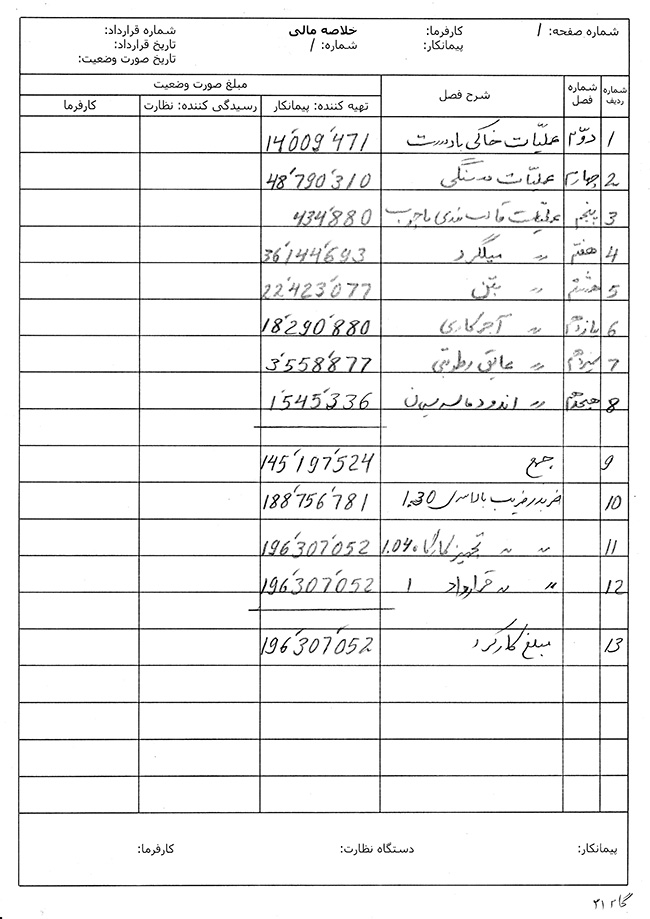 شماره صفحه: / کارفرما: خلاصه مالی شماره قرارداد:
پیمانکار: شماره: / تاریخ قرارداد:
تاریخ صورت وضعیت:
شماره ردیف شماره فصل شرح فصل مبلغ صورت وضعیت
تهیه کننده: پیمانکار رسیدگی کننده: نظارت کارفرما
1 دوّم عملیّات خاکی با دست 14'009'471
2 چهارم عملیّات سنگی 48'790'310
3 پنجم عملیّات قالب بندی با چوب 434'880
4 هفتم " میلگرد 36'144'693
5 هشتم " بتن 22'423'077
6 یازدهم " آجرکاری 18'290'880
7 سیزدهم " عایق رطوبتی 3'558'877
8 هجدهم " اندود 1'545'336
9 جمع 145'197'524
10 ضریب بالاسری 1.30 188'756'781
11 " " تجهیز کارگاه 1.040 196'307'052
12 " " قرارداد 1 196'307'052
13 مبلغ کارکرد 196'307'052
پیمانکار: دستگاه نظارت: کارفرما:
۲۱